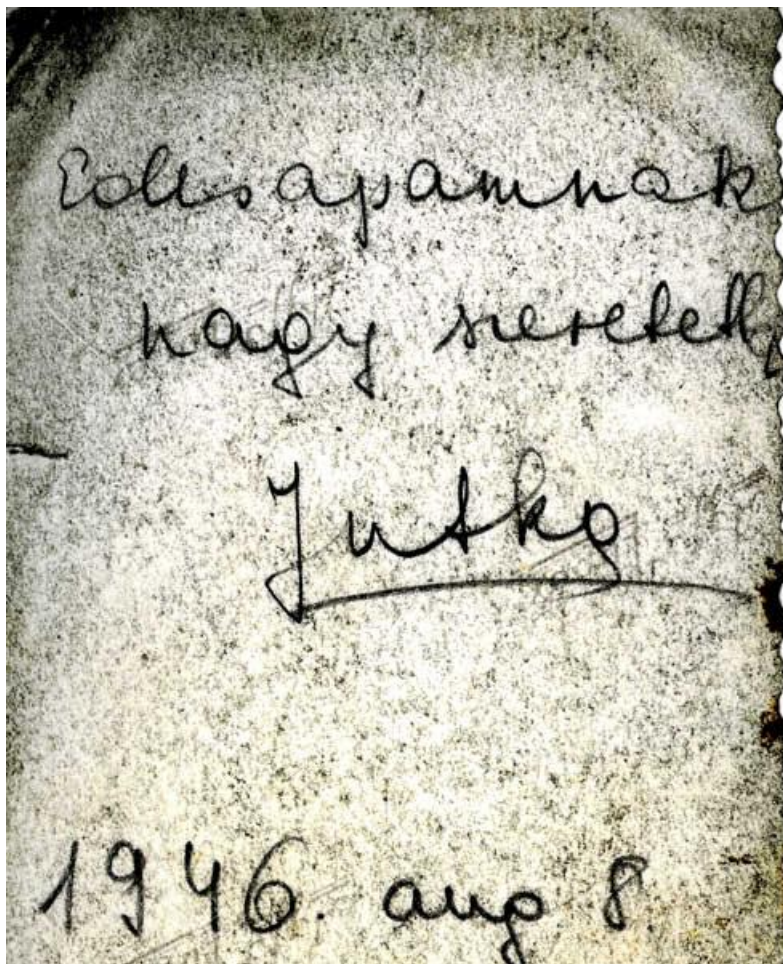 Édesapámnak
nagy szeretett
Jutka
1946. aug 8.